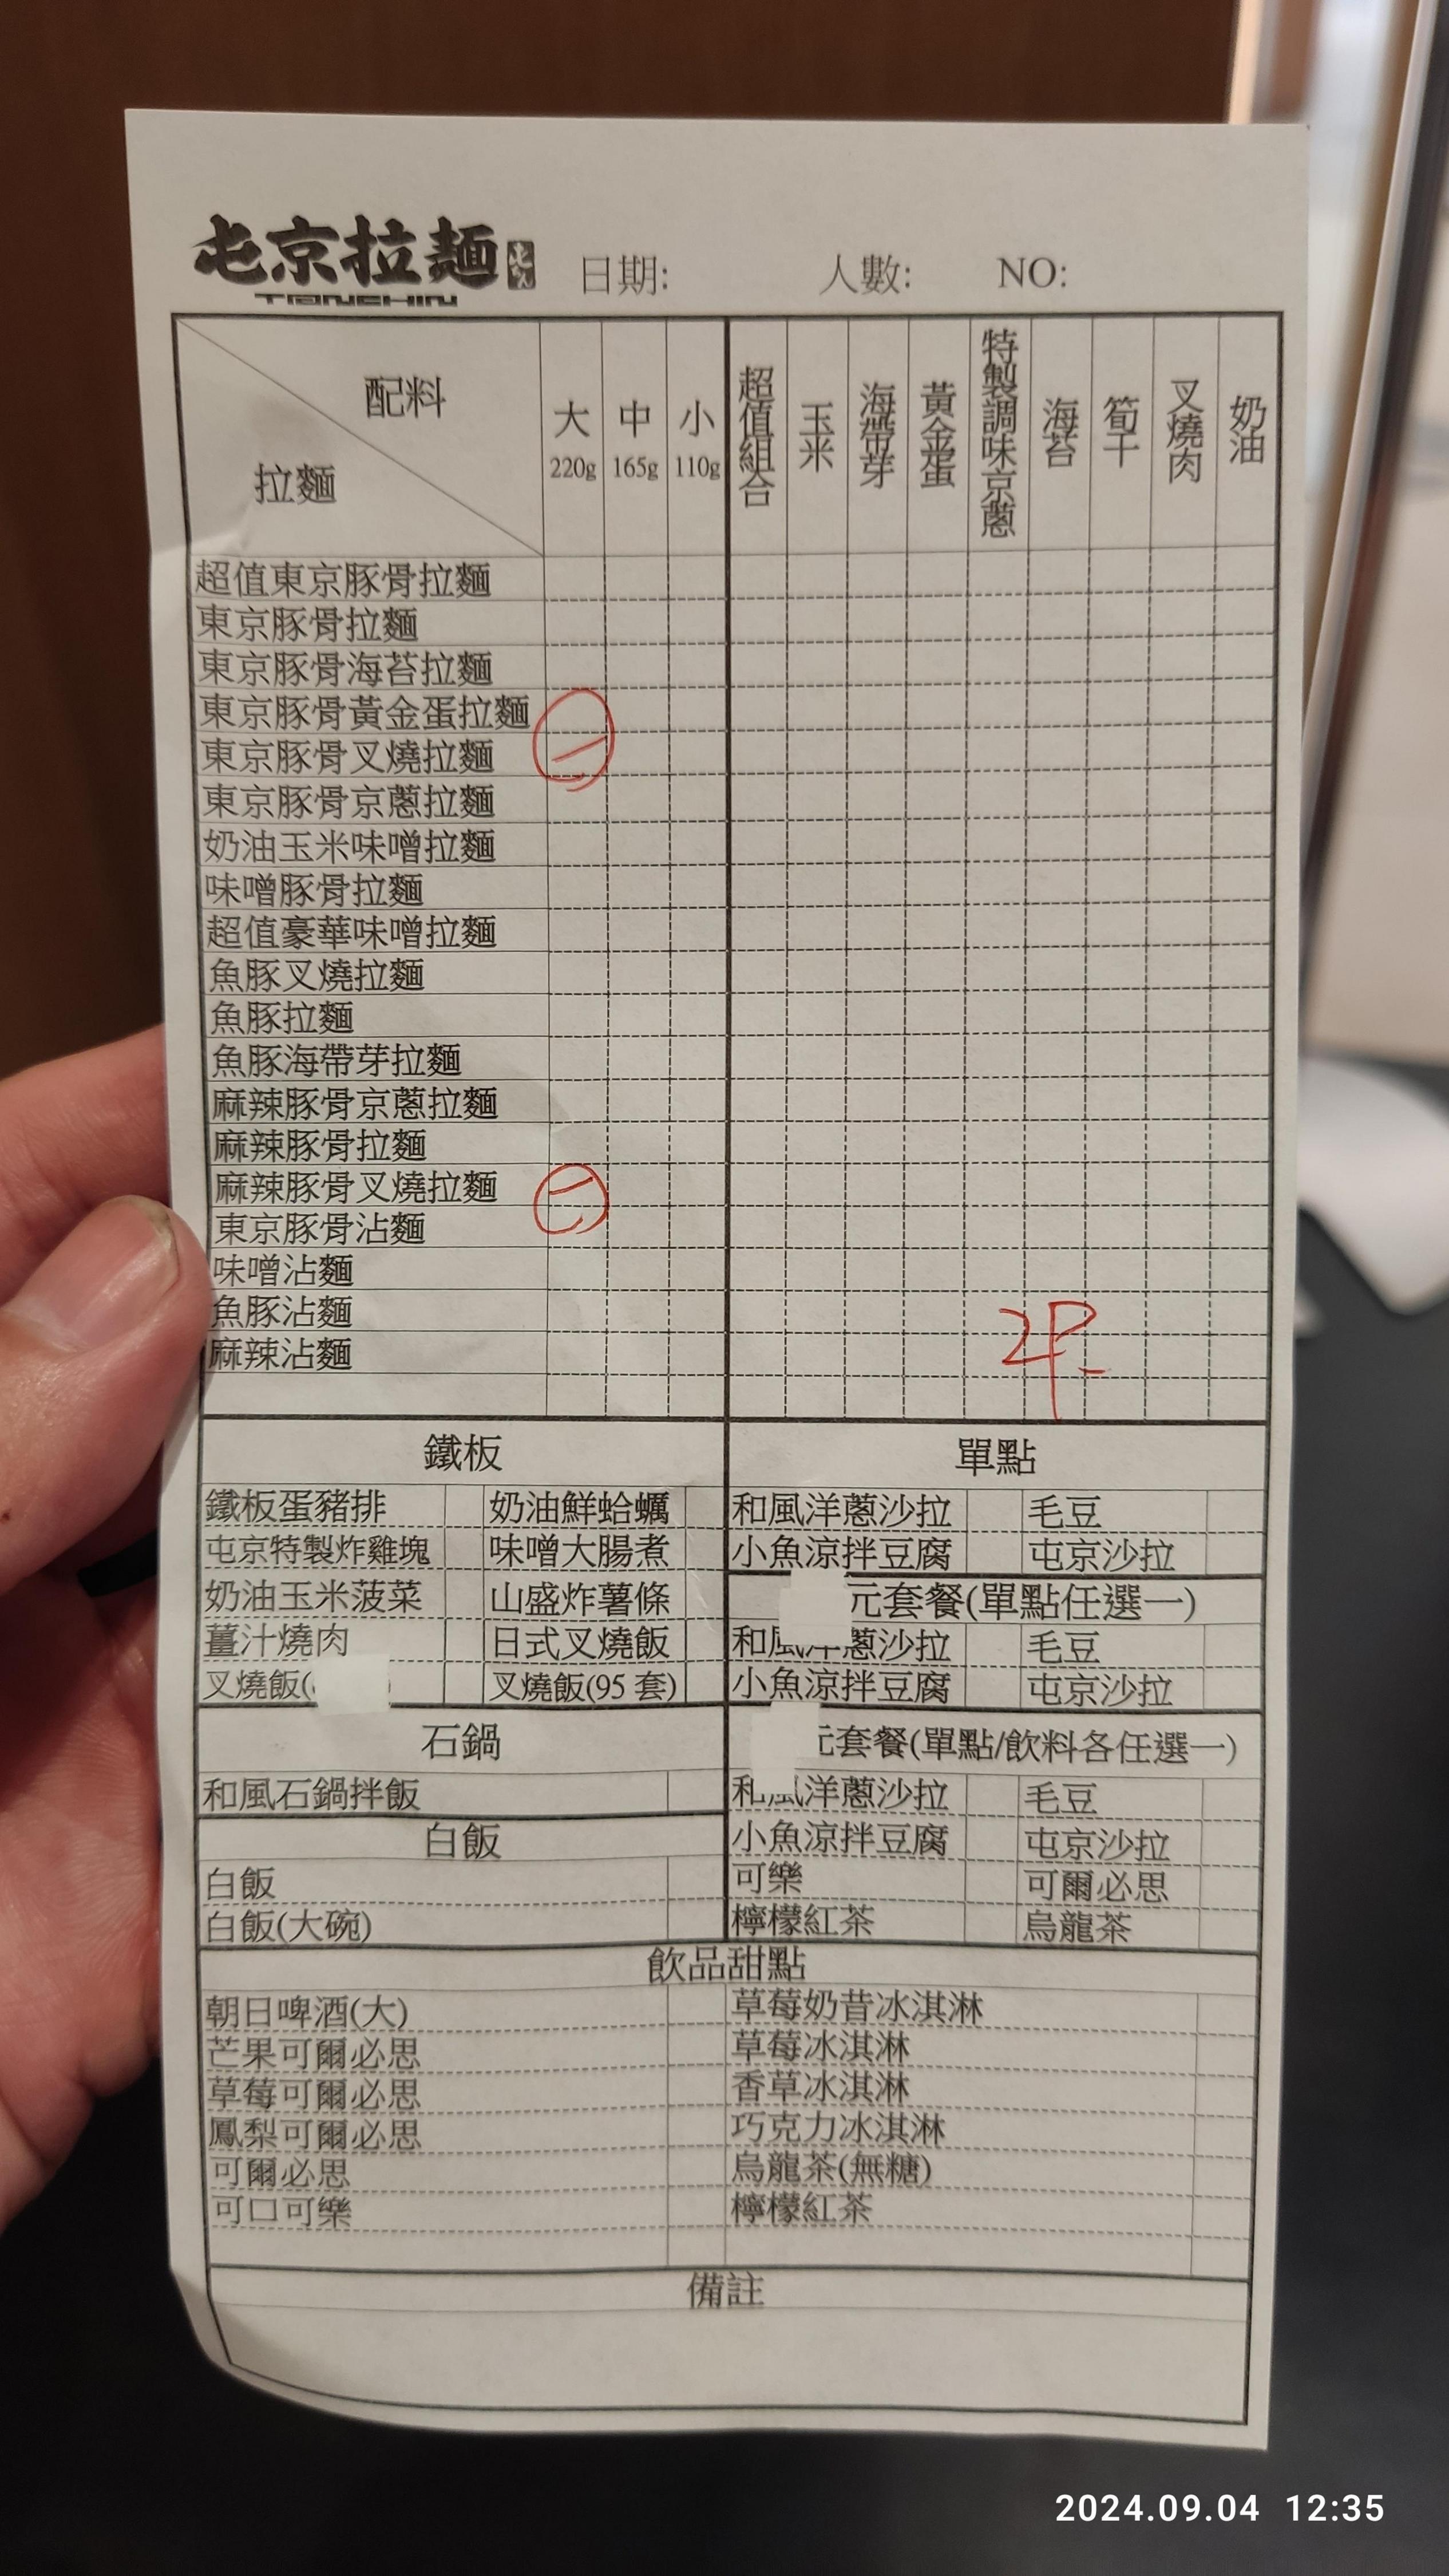 屯京拉麵 日期: 人數: NO:
TONCHIN
配料
拉麵
大 220g
中 165g
小 110g
超值組合
玉米
海帶芽
黃金蛋
特製調味京蔥
海苔
筍干
叉燒肉
奶油
超值東京豚骨拉麵
東京豚骨拉麵
東京豚骨海苔拉麵
東京豚骨黃金蛋拉麵
東京豚骨叉燒拉麵 一
東京豚骨京蔥拉麵
奶油玉米味噌拉麵
味噌豚骨拉麵
超值豪華味噌拉麵
魚豚叉燒拉麵
魚豚拉麵
魚豚海帶芽拉麵
麻辣豚骨京蔥拉麵
麻辣豚骨拉麵
麻辣豚骨叉燒拉麵 一
東京豚骨沾麵
味噌沾麵
魚豚沾麵
麻辣沾麵
2P
鐵板 單點
鐵板蛋豬排 奶油鮮蛤蠣 和風洋蔥沙拉 毛豆
屯京特製炸雞塊 味噌大腸煮 小魚涼拌豆腐 屯京沙拉
奶油玉米菠菜 山盛炸薯條 元套餐(單點任選一)
薑汁燒肉 日式叉燒飯 和風洋蔥沙拉 毛豆
叉燒飯( ) 叉燒飯(95 套) 小魚涼拌豆腐 屯京沙拉
石鍋 元套餐(單點/飲料各任選一)
和風石鍋拌飯 和風洋蔥沙拉 毛豆
白飯 小魚涼拌豆腐 屯京沙拉
白飯 可樂 可爾必思
白飯(大碗) 檸檬紅茶 烏龍茶
飲品甜點
朝日啤酒(大) 草莓奶昔冰淇淋
芒果可爾必思 草莓冰淇淋
草莓可爾必思 香草冰淇淋
鳳梨可爾必思 巧克力冰淇淋
可爾必思 烏龍茶(無糖)
可口可樂 檸檬紅茶
備註
2024.09.04 12:35